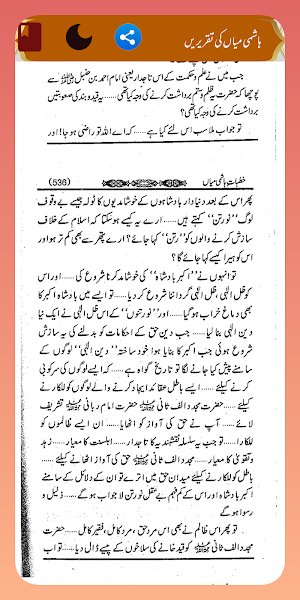 ہاشمی میاں کی تقریریں
جب میں نے علم و حکمت کے اس تاجدار یعنی امام احمد بن حنبل ﷫ سے
پوچھا کہ حضرت یہ ظلم و ستم برداشت کرنے کی وجہ کیا تھی ...... یہ قید و بند کی صعوبتیں
برداشت کرنے کی وجہ کیا تھی؟
تو جواب ملا سب اس لئے کیا ہے ...... کہ اے اللہ تو راضی ہو جا! اور
خطبات ہاشمی میاں (536)
پھر اس کے بعد دنیا دار بادشاہوں کے خوشامدیوں کا ٹولہ جسے بے وقوف
لوگ ”نورتن“ کہتے ہیں ...... ارے یہ کیسے ہو سکتا کہ اسلام کے خلاف
سازش کرنے والوں کو ”رتن“ کہا جائے؟ ارے پتھر سے بھی کم تر ہو اور
اس کو ہیرا کیسے کہا جائے گا؟
تو انہوں نے ”اکبر بادشاہ“ کی خوشامد کرنا شروع کی ...... اور اس
کو ظل الٰہی، ظل الٰہی گرداننا شروع کر دیا ...... تو ایسے میں بادشاہ اکبر کا
بھی دماغ خراب ہو گیا ...... اور ”نورتنوں“ کے اس ظل الٰہی نے ایک نیا
دین الٰہی بنا لیا ...... جب دین حق کے احکامات کو بدلنے کی یہ سازش
شروع ہوئی جب اکبر کا بنایا ہوا خود ساختہ ”دین الٰہی“ لوگوں کے
سامنے پیش کیا جانے لگا تو تاریخ گواہ ہے ...... کہ ایسے لوگوں کی سرکوبی
کرنے کیلئے ...... ایسے باطل عقائد ایجاد کرنے والے لوگوں کو للکارنے
کیلئے ...... حضرت مجدد الف ثانی ﷫ حضرت امام ربانی ﷫ تشریف
لائے ...... آپ نے حق کی آواز کو اٹھایا ...... ان ایسے ظالموں کو
للکارا ...... تو جب یہ سلسلہ نقشبندیہ کا تاجدار ...... اہلسنت کا معیار ...... زہد
و تقویٰ کا معیار ...... مجدد الف ثانی ﷫ حق کی آواز اٹھانے کیلئے ......
باطل کو للکارنے کیلئے میدان حق میں اترے تو ان کے دلائل کے سامنے
اکبر بادشاہ اور اس کے کم فہم بے عقل نورتن لاجواب ہو گئے ...... ذلیل و
رسوا ہو گئے
تو پھر اس ظالم نے بھی اس مرد حق، مرد کامل، فقیر کامل ...... حضرت
مجدد الف ثانی ﷫ کو قید خانے کی سلاخوں کے پیچھے ڈال دیا ...... تو اب